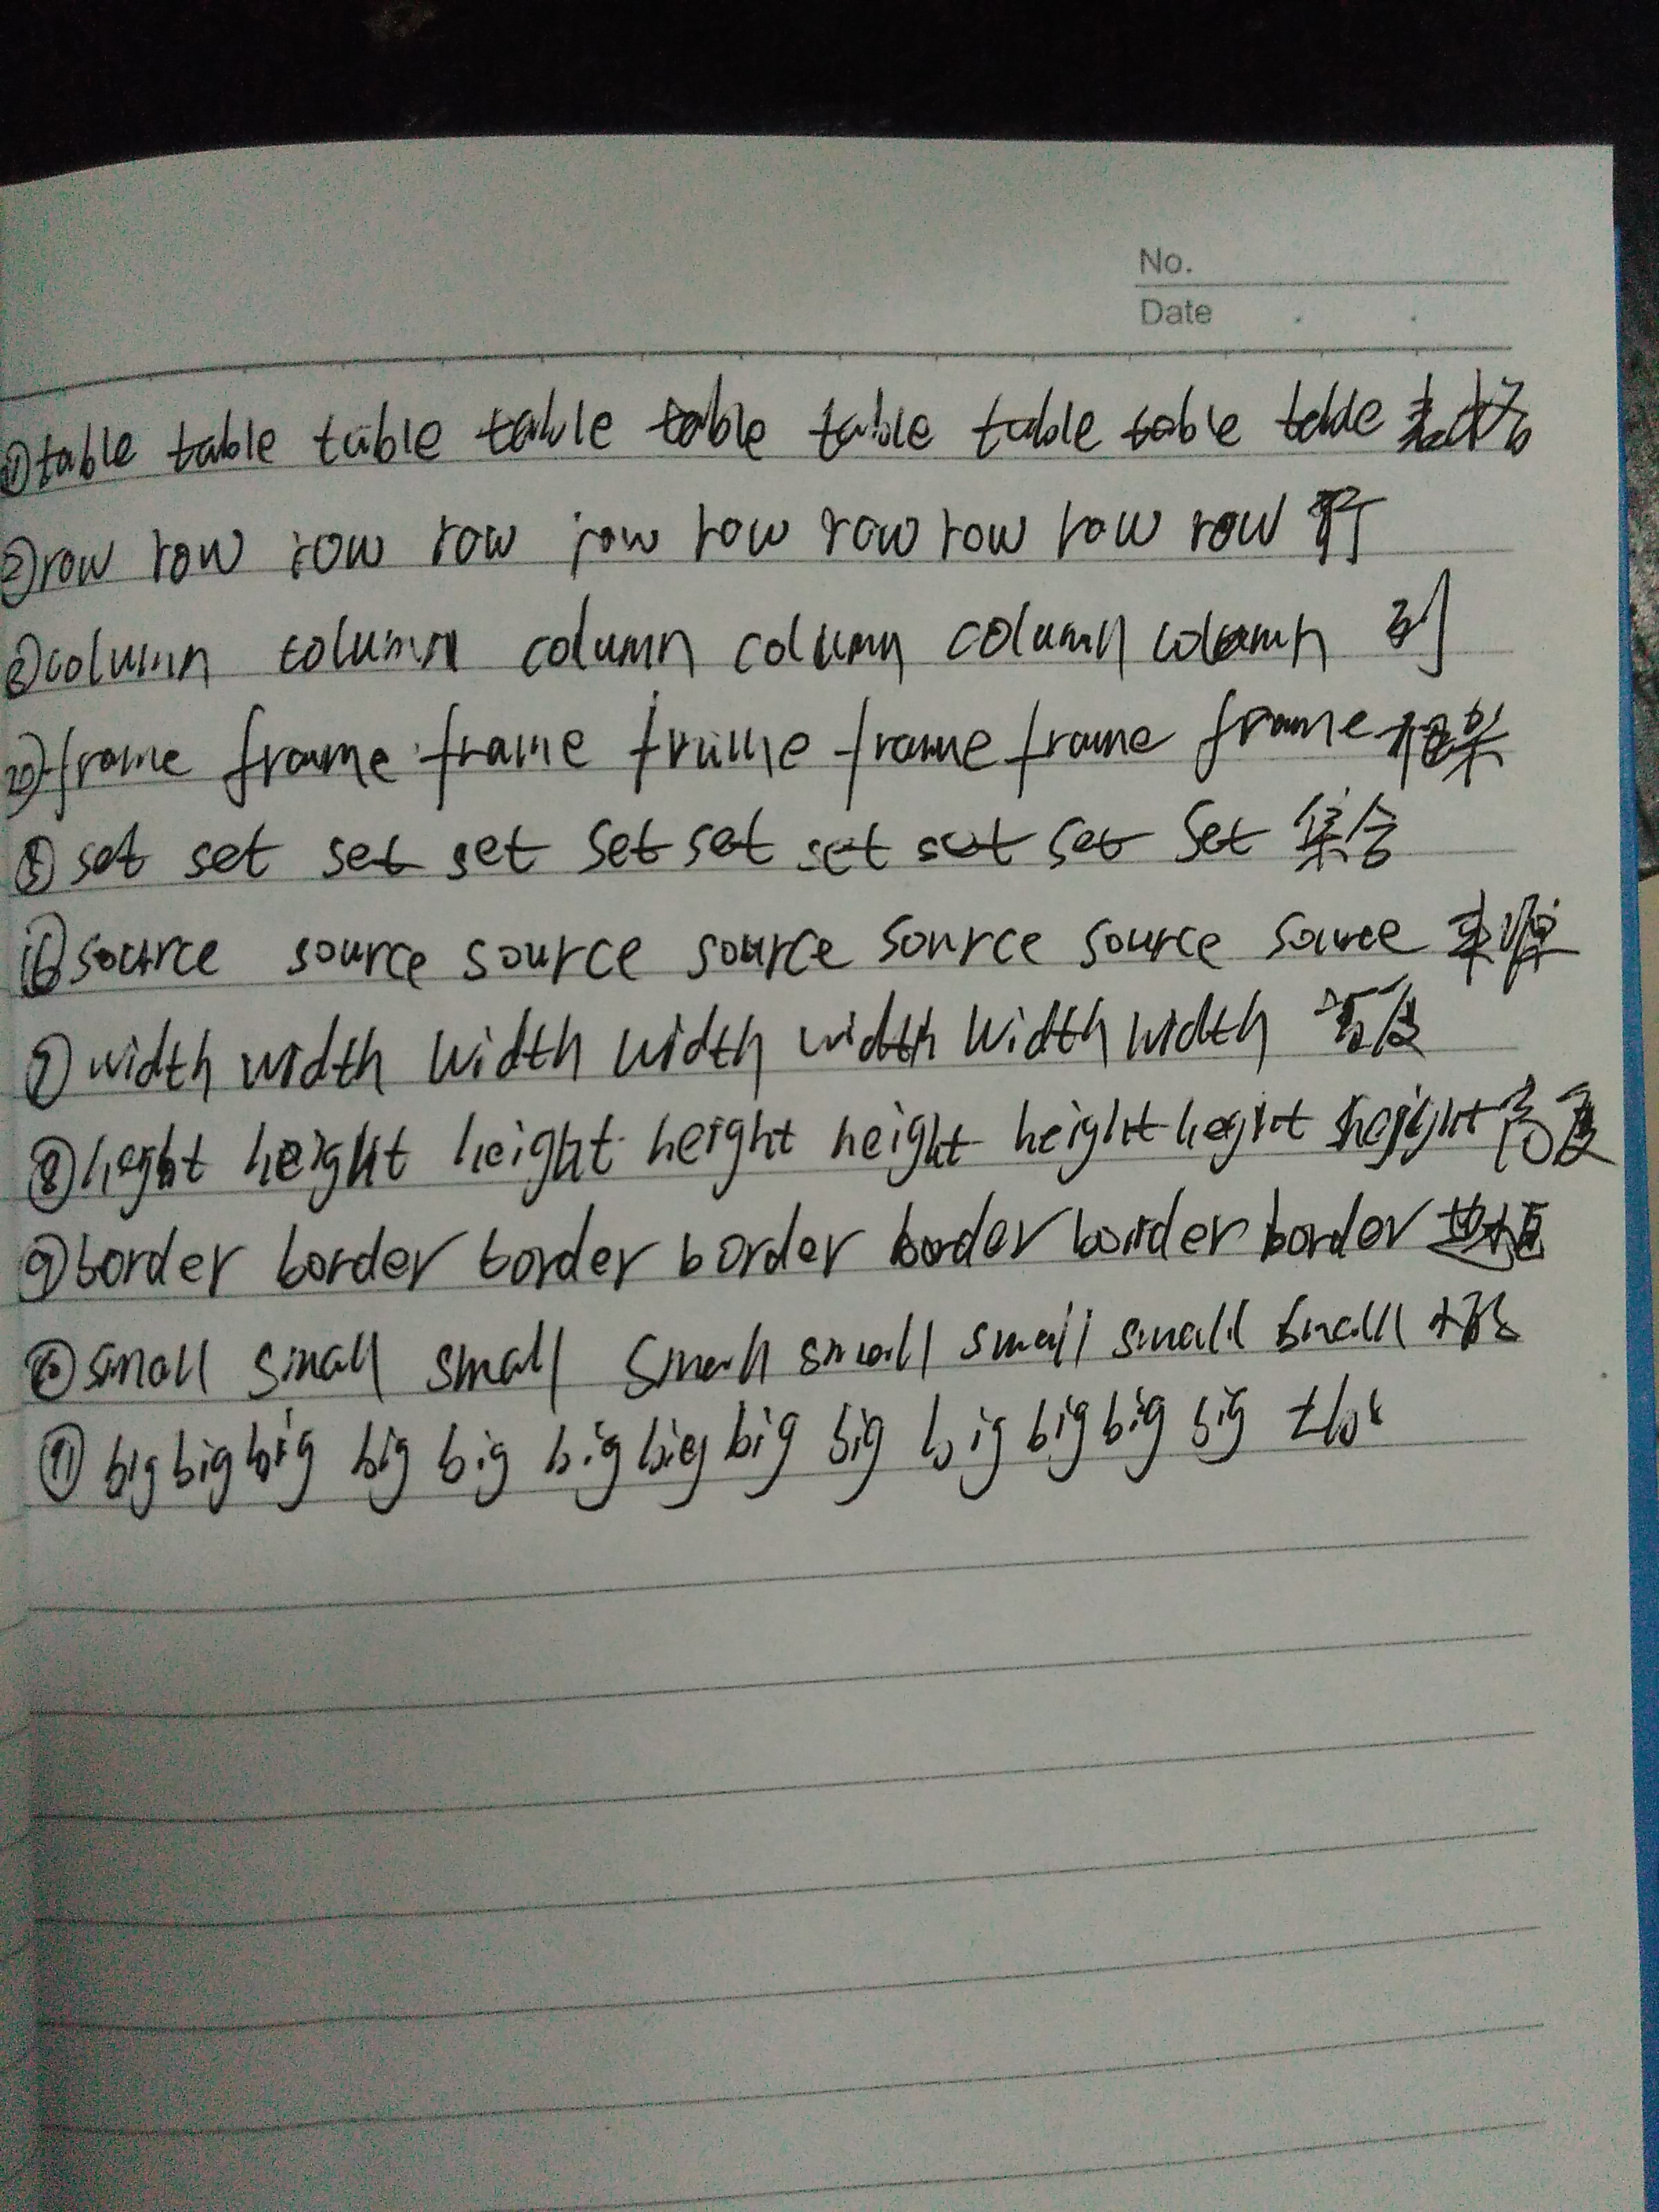 No.
Date
①table table table table table table table table table 表格
②row row row row row row row row row row 行
③column column column column column column 列
frame frame frame frame frame frame frame 框架
⑤ set set set set set set set set set set 集合
⑥source source source source source source source 来源
⑦ width width width width width width width 宽度
⑧height height height height height height height height 高度
⑨border border border border border border border 边框
⑩small small small small small small small small
⑪ big big big big big big big big big big big big big